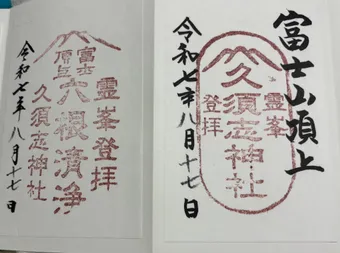 富士山頂上
霊峯
久須志神社
登拝
令和七年八月十七日
霊峯登拝
富士
頂上
六根清浄
久須志神社
令和七年八月十七日